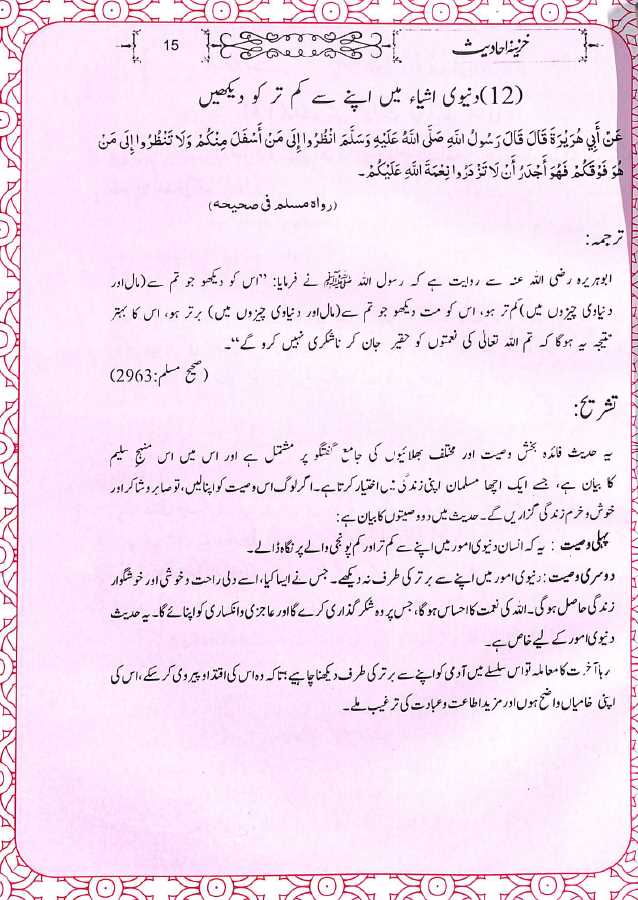 خزینۂ احادیث
15
(12) دنیوی اشیاء میں اپنے سے کم تر کو دیکھیں
عَنْ أَبِي هُرَيْرَةَ قَالَ قَالَ رَسُولُ اللَّهِ صَلَّى اللَّهُ عَلَيْهِ وَسَلَّمَ انْظُرُوا إِلَى مَنْ أَسْفَلَ مِنْكُمْ وَلَا تَنْظُرُوا إِلَى مَنْ
هُوَ فَوْقَكُمْ فَهُوَ أَجْدَرُ أَنْ لَا تَزْدَرُوا نِعْمَةَ اللَّهِ عَلَيْكُمْ۔
(رواه مسلم فی صحیحه)
ترجمہ:
ابوہریرہ رضی اللہ عنہ سے روایت ہے کہ رسول اللہ ﷺ نے فرمایا: ”اس کو دیکھو جو تم سے (مال اور
دنیاوی چیزوں میں) کم تر ہو، اس کو مت دیکھو جو تم سے (مال اور دنیاوی چیزوں میں) برتر ہو، اس کا بہتر
نتیجہ یہ ہوگا کہ تم اللہ تعالی کی نعمتوں کو حقیر جان کر ناشکری نہیں کرو گے“۔
(صحیح مسلم:2963)
تشریح:
یہ حدیث فائدہ بخش وصیت اور مختلف بھلائیوں کی جامع گفتگو پر مشتمل ہے اور اس میں اس منہج سلیم
کا بیان ہے، جسے ایک اچھا مسلمان اپنی زندگی میں اختیار کرتا ہے۔ اگر لوگ اس وصیت کو اپنا لیں، تو صابر و شاکر اور
خوش و خرم زندگی گزاریں گے۔ حدیث میں دو وصیتوں کا بیان ہے:
پہلی وصیت : یہ کہ انسان دنیوی امور میں اپنے سے کم تر اور کم پونجی والے پر نگاہ ڈالے۔
دوسری وصیت : دنیوی امور میں اپنے سے برتر کی طرف نہ دیکھے۔ جس نے ایسا کیا، اسے دلی راحت و خوشی اور خوشگوار
زندگی حاصل ہوگی۔ اللہ کی نعمت کا احساس ہوگا، جس پر وہ شکر گذاری کرے گا اور عاجزی و انکساری کو اپنائے گا۔ یہ حدیث
دنیوی امور کے لیے خاص ہے۔
رہا آخرت کا معاملہ تو اس سلسلے میں آدمی کو اپنے سے برتر کی طرف دیکھنا چاہیے؛ تاکہ وہ اس کی اقتدا و پیروی کر سکے، اس کی
اپنی خامیاں واضح ہوں اور مزید اطاعت و عبادت کی ترغیب ملے۔